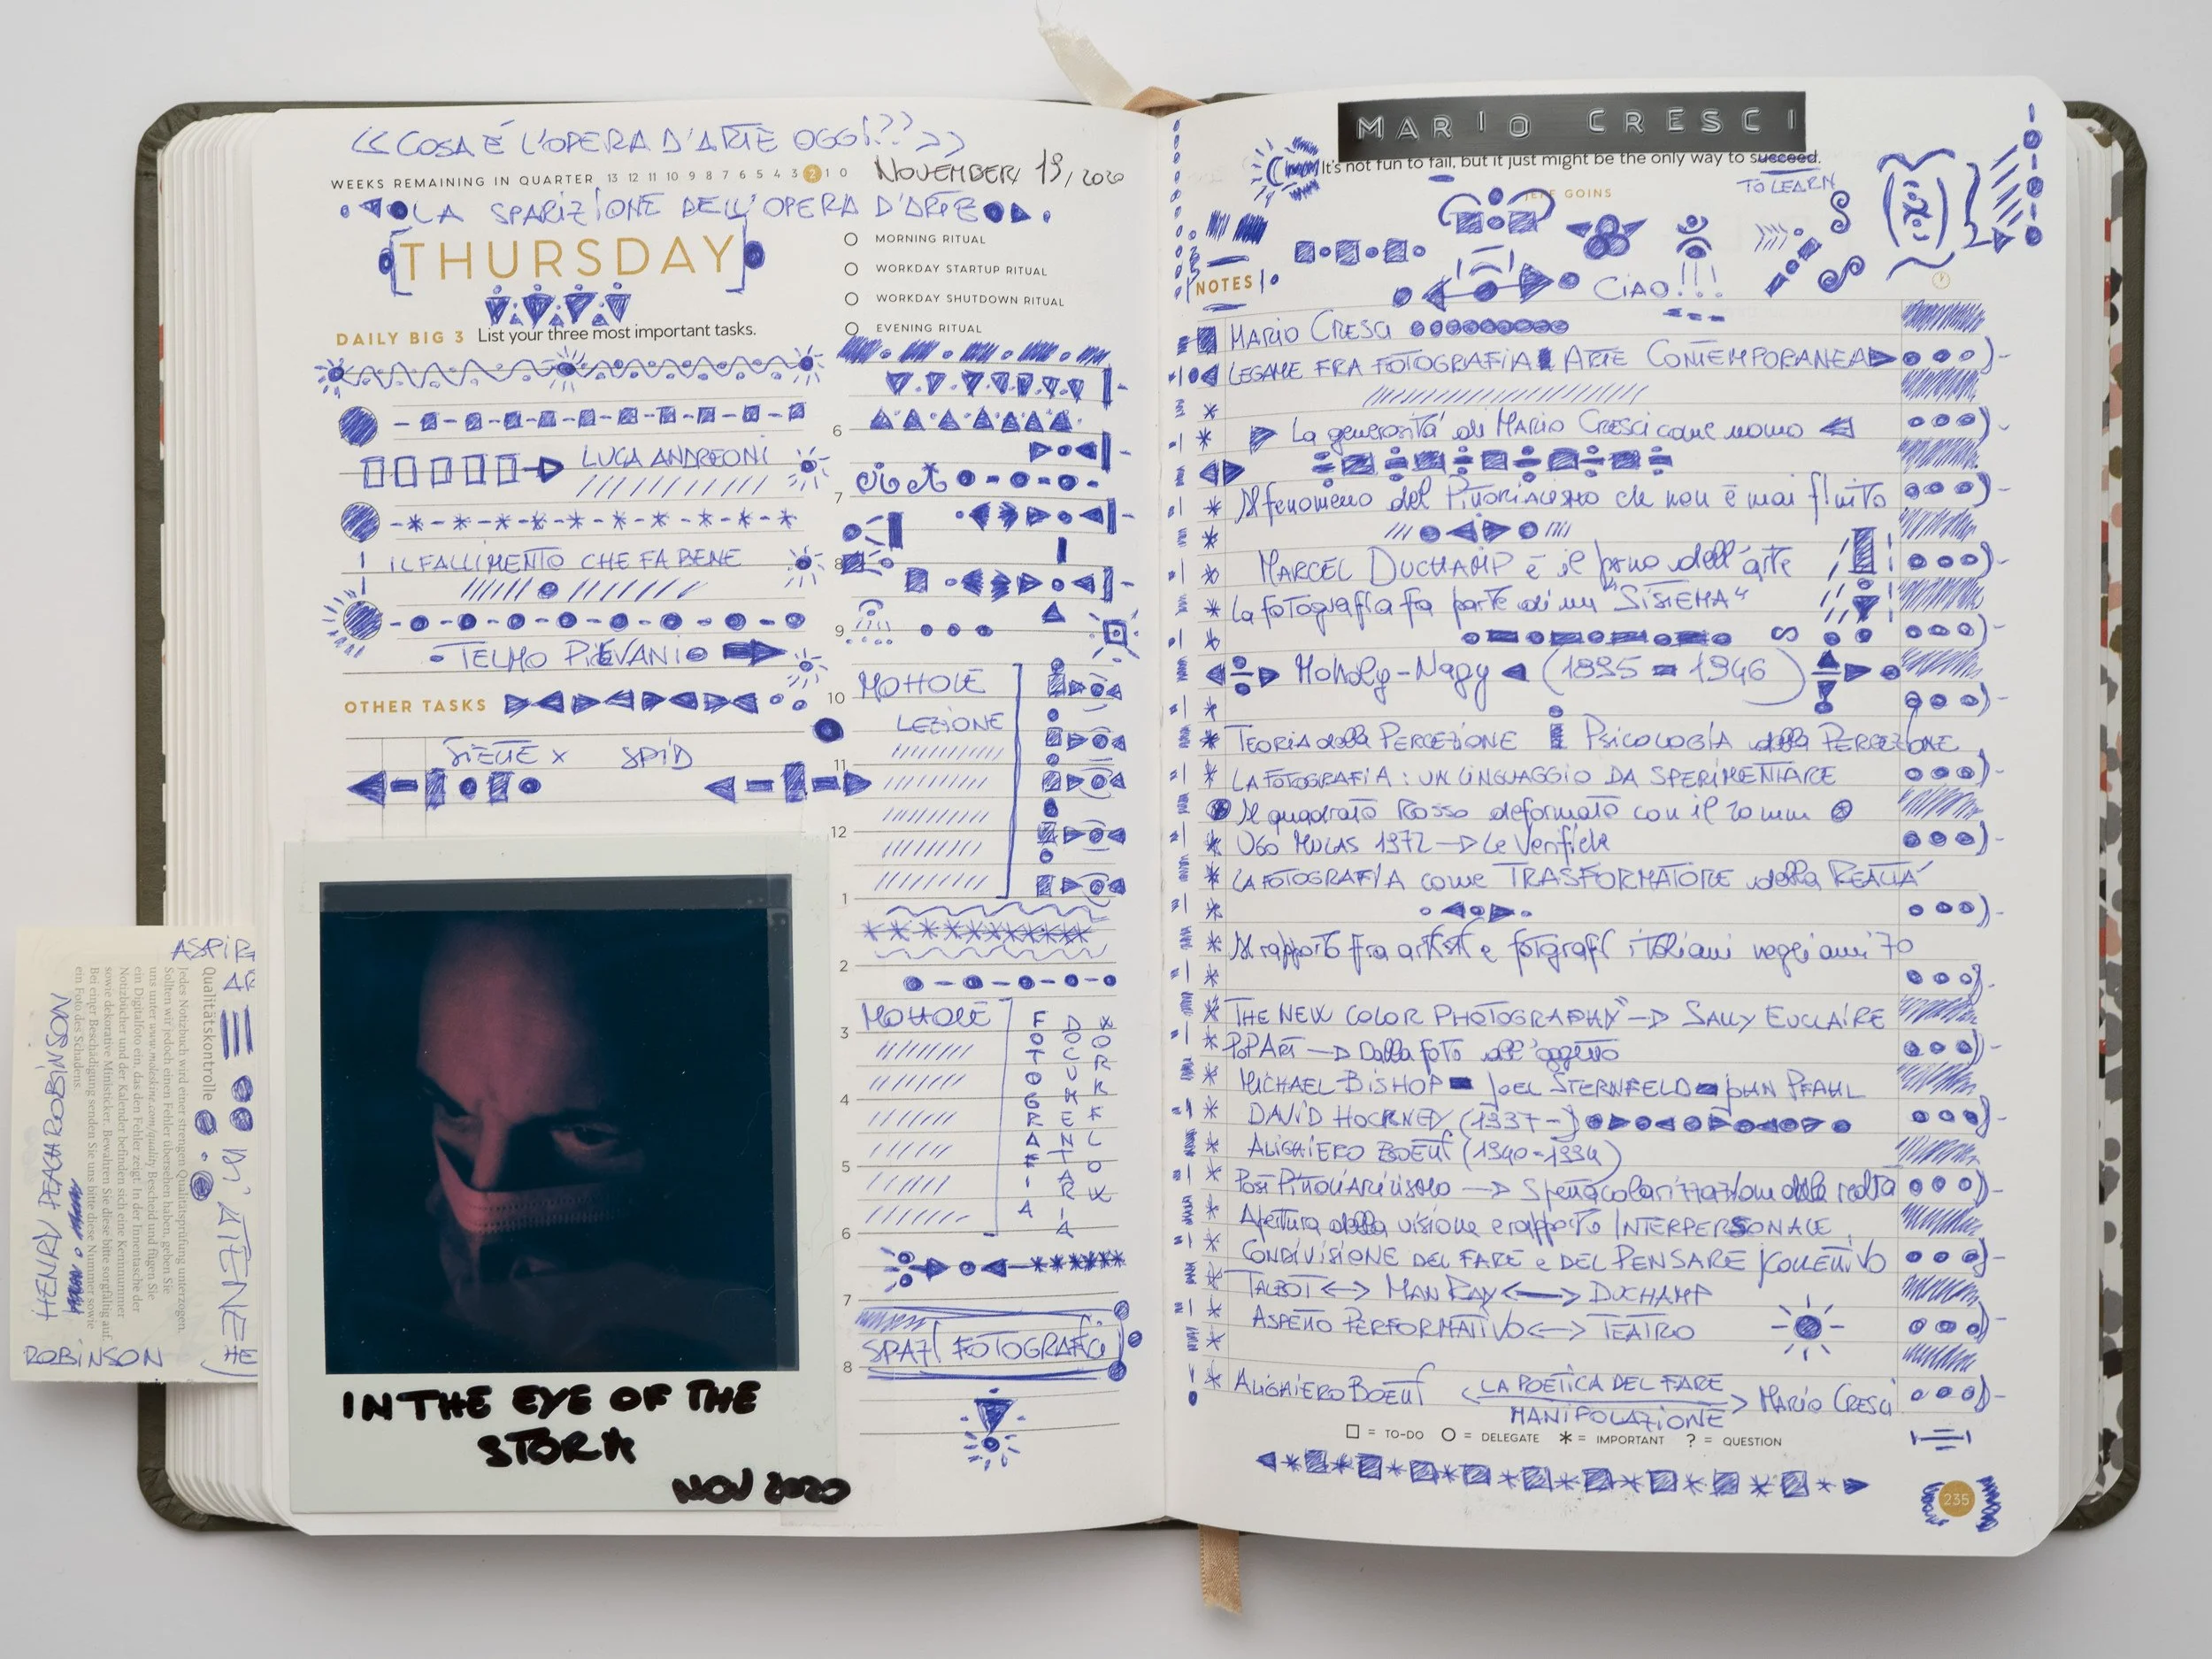 <<COSA É L'OPERA D'ARTE OGGI??>>
WEEKS REMAINING IN QUARTER 13 12 11 10 9 8 7 6 5 4 3 2 1 0
NOVEMBER 19, 2020
LA SPARIZIONE DELL'OPERA D'ARTE
THURSDAY
MORNING RITUAL
WORKDAY STARTUP RITUAL
WORKDAY SHUTDOWN RITUAL
EVENING RITUAL
DAILY BIG 3 List your three most important tasks.
LUCA ANDREONI
IL FALLIMENTO CHE FA BENE
TELMO PIEVANI
OTHER TASKS
SIETE x SPID
6
7
8
9
10
MOHOLE
LEZIONE
11
12
1
2
MOHOLE
3
4
5
6
FOTOGRAFIA
DOCUMENTARIA
WORKFLOW
7
SPAZI FOTOGRAFICI
8
IN THE EYE OF THE
STORM
NOV 2020
ASPIR
HENRY PEACH ROBINSON
ROBINSON
Qualitätskontrolle
Jedes Notizbuch wird einer strengen Qualitätsprüfung unterzogen.
Sollten wir jedoch einen Fehler übersehen haben, geben Sie
uns unter www.moleskine.com/quality Bescheid und fügen Sie
ein Digitalfoto ein, das den Fehler zeigt. In der Innentasche der
Notizbücher und der Kalender befinden sich eine Kennnummer
sowie dekorative Ministicker. Bewahren Sie diese bitte sorgfältig auf.
Bei einer Beschädigung senden Sie uns bitte diese Nummer sowie
ein Foto des Schadens.
MARIO CRESCI
It's not fun to fail, but it just might be the only way to succeed.
TO LEARN
JEFF GOINS
CIAO!!!
NOTES
MARIO CRESCI
LEGAME FRA FOTOGRAFIA ARTE CONTEMPORANEA
La generositá di MARIO CRESCI come uomo
Il fenomeno del PITTORIALISMO che non è mai finito
MARCEL DUCHAMP è il perno dell'arte
La fotografia fa parte di un "SISTEMA"
Moholy-Nagy (1895 - 1946)
TEORIA della PERCEZIONE PSICOLOGIA della PERCEZIONE
LA FOTOGRAFIA: UN LINGUAGGIO DA SPERIMENTARE
Il quadrato Rosso deformato con il 20 mm
UGO MULAS 1972 → Le Verifiche
LA FOTOGRAFIA come TRASFORMATORE della REALTA'
Il rapporto fra artisti e fotografi italiani negli anni 70
THE NEW COLOR PHOTOGRAPHY" → SALLY EUCLAIRE
POP ART → Dalla foto all'oggetto
MICHAEL BISHOP - JOEL STERNFELD - JOHN PFAHL
DAVID HOCKNEY (1937-)
ALIGHIERO BOETTI (1940-1994)
POST PITTORIALISMO → Spettacolarizzazione della realtà
Apertura della visione e rapporto INTERPERSONALE,
CONDIVISIONE DEL FARE e DEL PENSARE COLLETTIVO
TALBOT <-> MAN RAY <-> DUCHAMP
ASPETTO PERFORMATIVO <-> TEATRO
ALIGHIERO BOETTI < LA POETICA DEL FARE > MARIO CRESCI
MANIPOLAZIONE
□ = TO-DO ○ = DELEGATE * = IMPORTANT ? = QUESTION
235